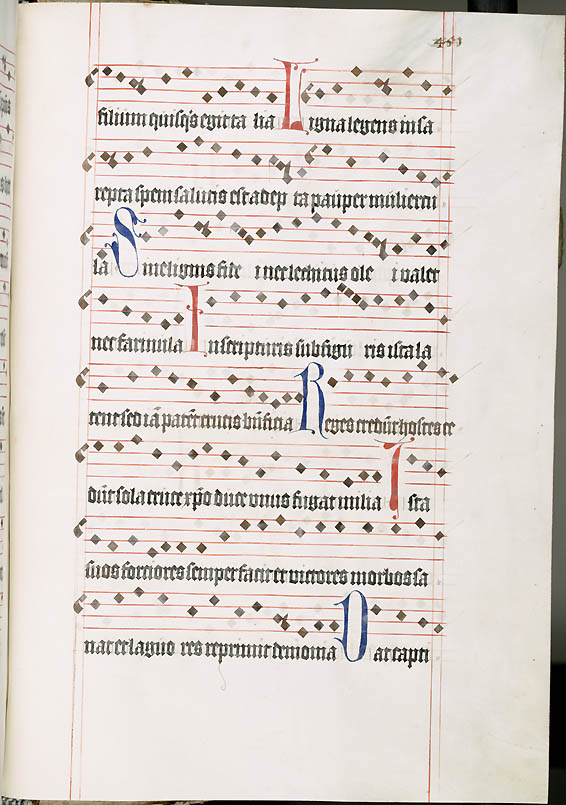 filium quisq3 egit ta lia Ligna legens in sa
repta spem salutis est adep ta pauper muliercu
la Sine lignis fide i nec lechitus ole i valet
nec farinula In scripturis sub figu ris ista la
tent sed iā patēt crucis bn̄ficia Reges credūt hostes ce
dūt sola cruce xp̄o duce vnus fugat milia Ista
suos forciores semper facit et victores morbos sa
nat et laguo res reprimit demonia Dat capti